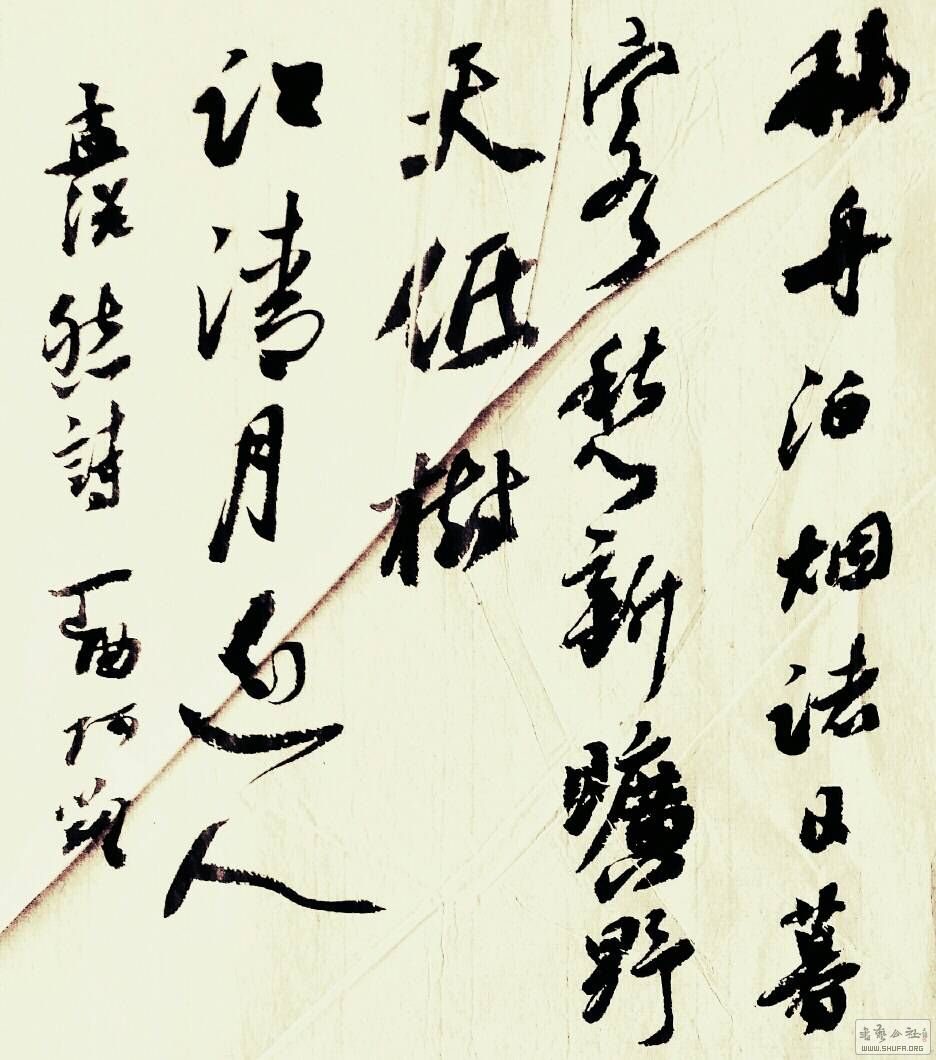 移舟泊烟渚日暮
客愁新旷野
天低樹
江清月近人
孟浩然詩 丁酉
書藝公社
WWW.SHUFA.ORG